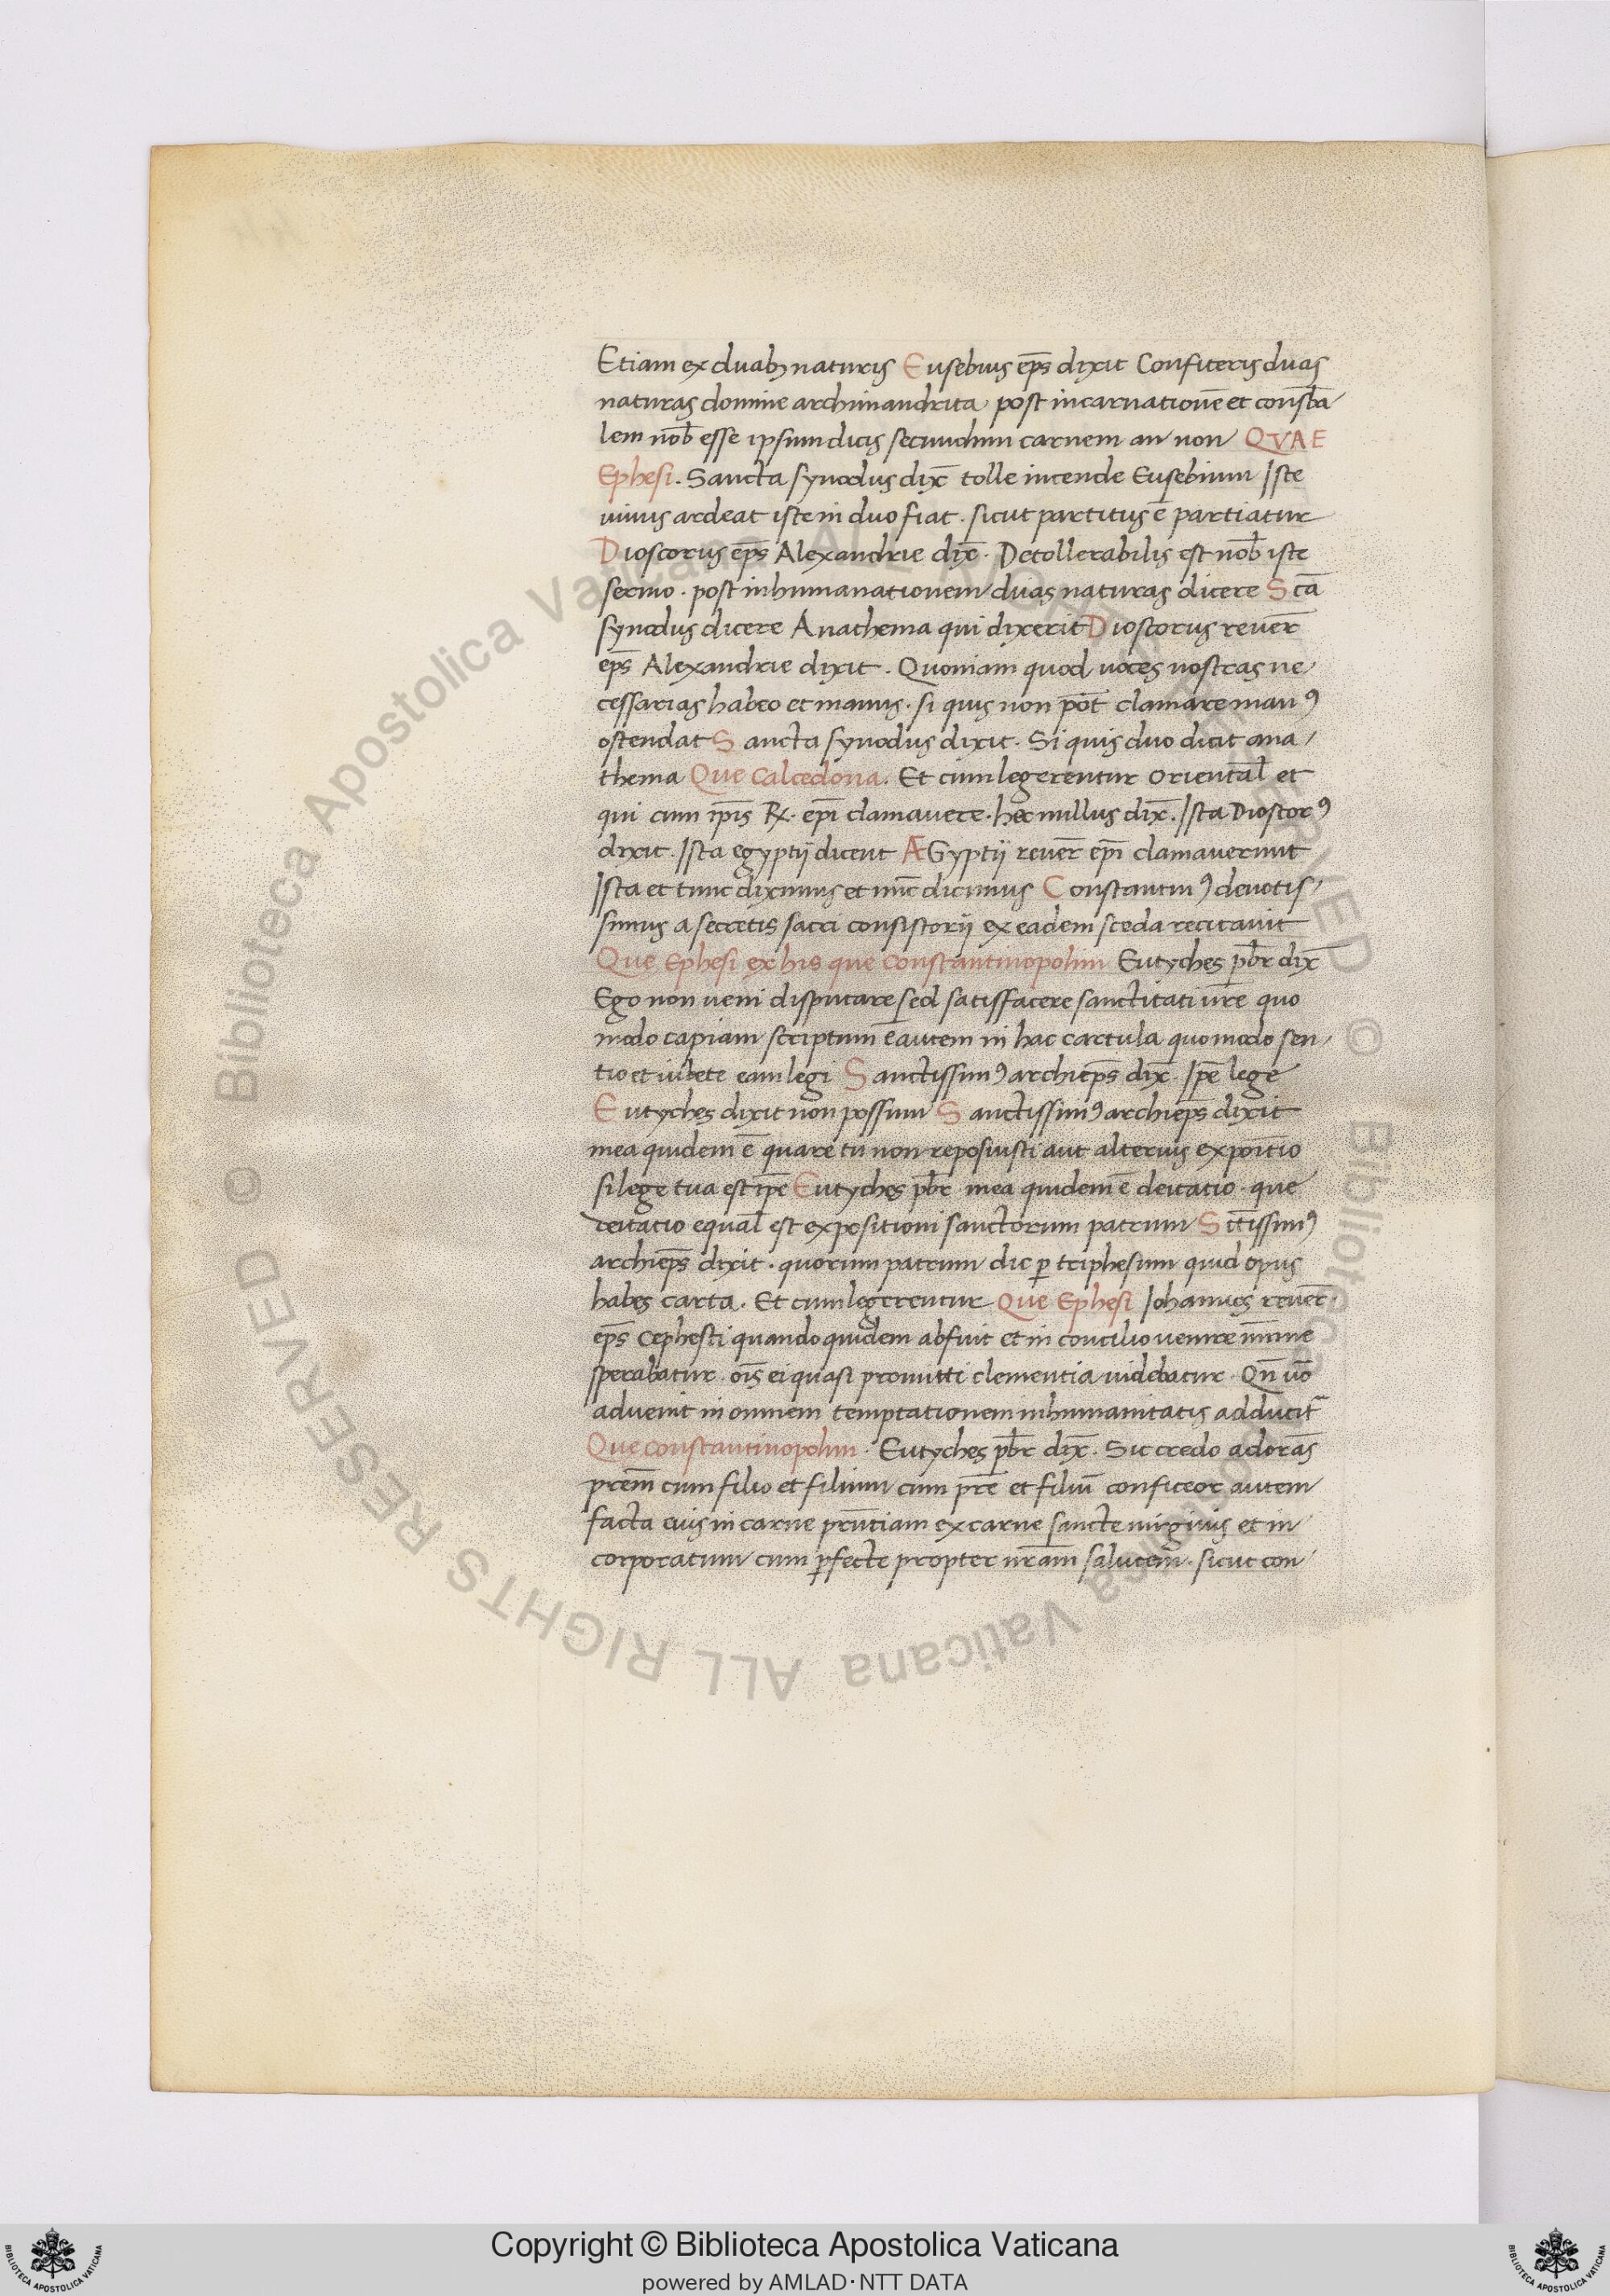 Etiam ex duabꝫ naturis Eusebius ep̄s dixit Confiteris duas
naturas domine archimandrita post incarnationē et const̄ba
lem nob̄ esse ipsum dicis secundum carnem an non QVAE
Ephesi. Sancta synodus dix̄ tolle incende Eusebium Iste
uiuus ardeat iste in duo fiat. sicut partitus ē partiatur
Dioscorus ep̄s Alexandrie dix̄. Detollerabilis est nob̄ iste
sermo. post inhumanationem duas naturas dicere Scā
synodus dicere Anathema qui dixerit Dioscorus reuer̄
ep̄s Alexandrie dixit. Quoniam quod uoces nostras ne,
cessarias habeo et manus. si quis non pōt clamare manꝰ
ostendat Sancta synodus dixit. Si quis duo dicit ana,
thema Que Calcedona. Et cum legerentur oriental̄ et
qui cum ip̄is R. ep̄i clamauere. hec nullus dix̄. Ista Dioscorꝰ
dixit. Ista egyptij dicent ÆGyptij reuer̄ ep̄i clamauerunt
Ista et tunc diximus et nūc dicimus Constantinꝰ deuotis,
simus a secretis sacri consistorij ex eadem sceda recitauit
Que Ephesi ex his que constantinopolim Eutyches pb̄r dix̄
Ego non ueni disputare sed satisfacere sanctitati ur̄e quo
modo capiam scriptum ē autem in hac cartula quomodo sen,
tio et iubete eam legi Sanctissimꝰ archiep̄s dix̄. Ip̄e lege
Eutyches dixit non possum Sanctissimꝰ archiep̄s dixit
mea quidem ē quare tu non reposuisti aut alterius expoītio
si lege tua est ip̄e Eutyches pb̄r mea quidem ē deitatio. que
reitatio equal̄ est expositioni sanctorum patrum Sc̄tissimꝰ
archiep̄s dixit. quorum patrum dic p triphesum quid opus
habes carta. Et cum legerentur Que Ephesi Iohannes reuer̄.
ep̄s cephesti quando quidem abfuit et in concilio uenire mīime
sperabatur. oīs ei quasi promitti clementia uidebatur. Qn̄ uō
aduenit in omnem temptationem inhumanitatis adducit̄
Que constantinopolim. Eutyches pb̄r dix̄. Sic credo adorās
prem̄ cum filio et filium cum pr̄e et filiū confiteor autem
facta eius in carne pn̄tiam ex carne sancte uirginis et in
corporatum cum ꝑfecte propter nr̄am salutem. sicut con
Copyright © Biblioteca Apostolica Vaticana
powered by AMLAD·NTT DATA